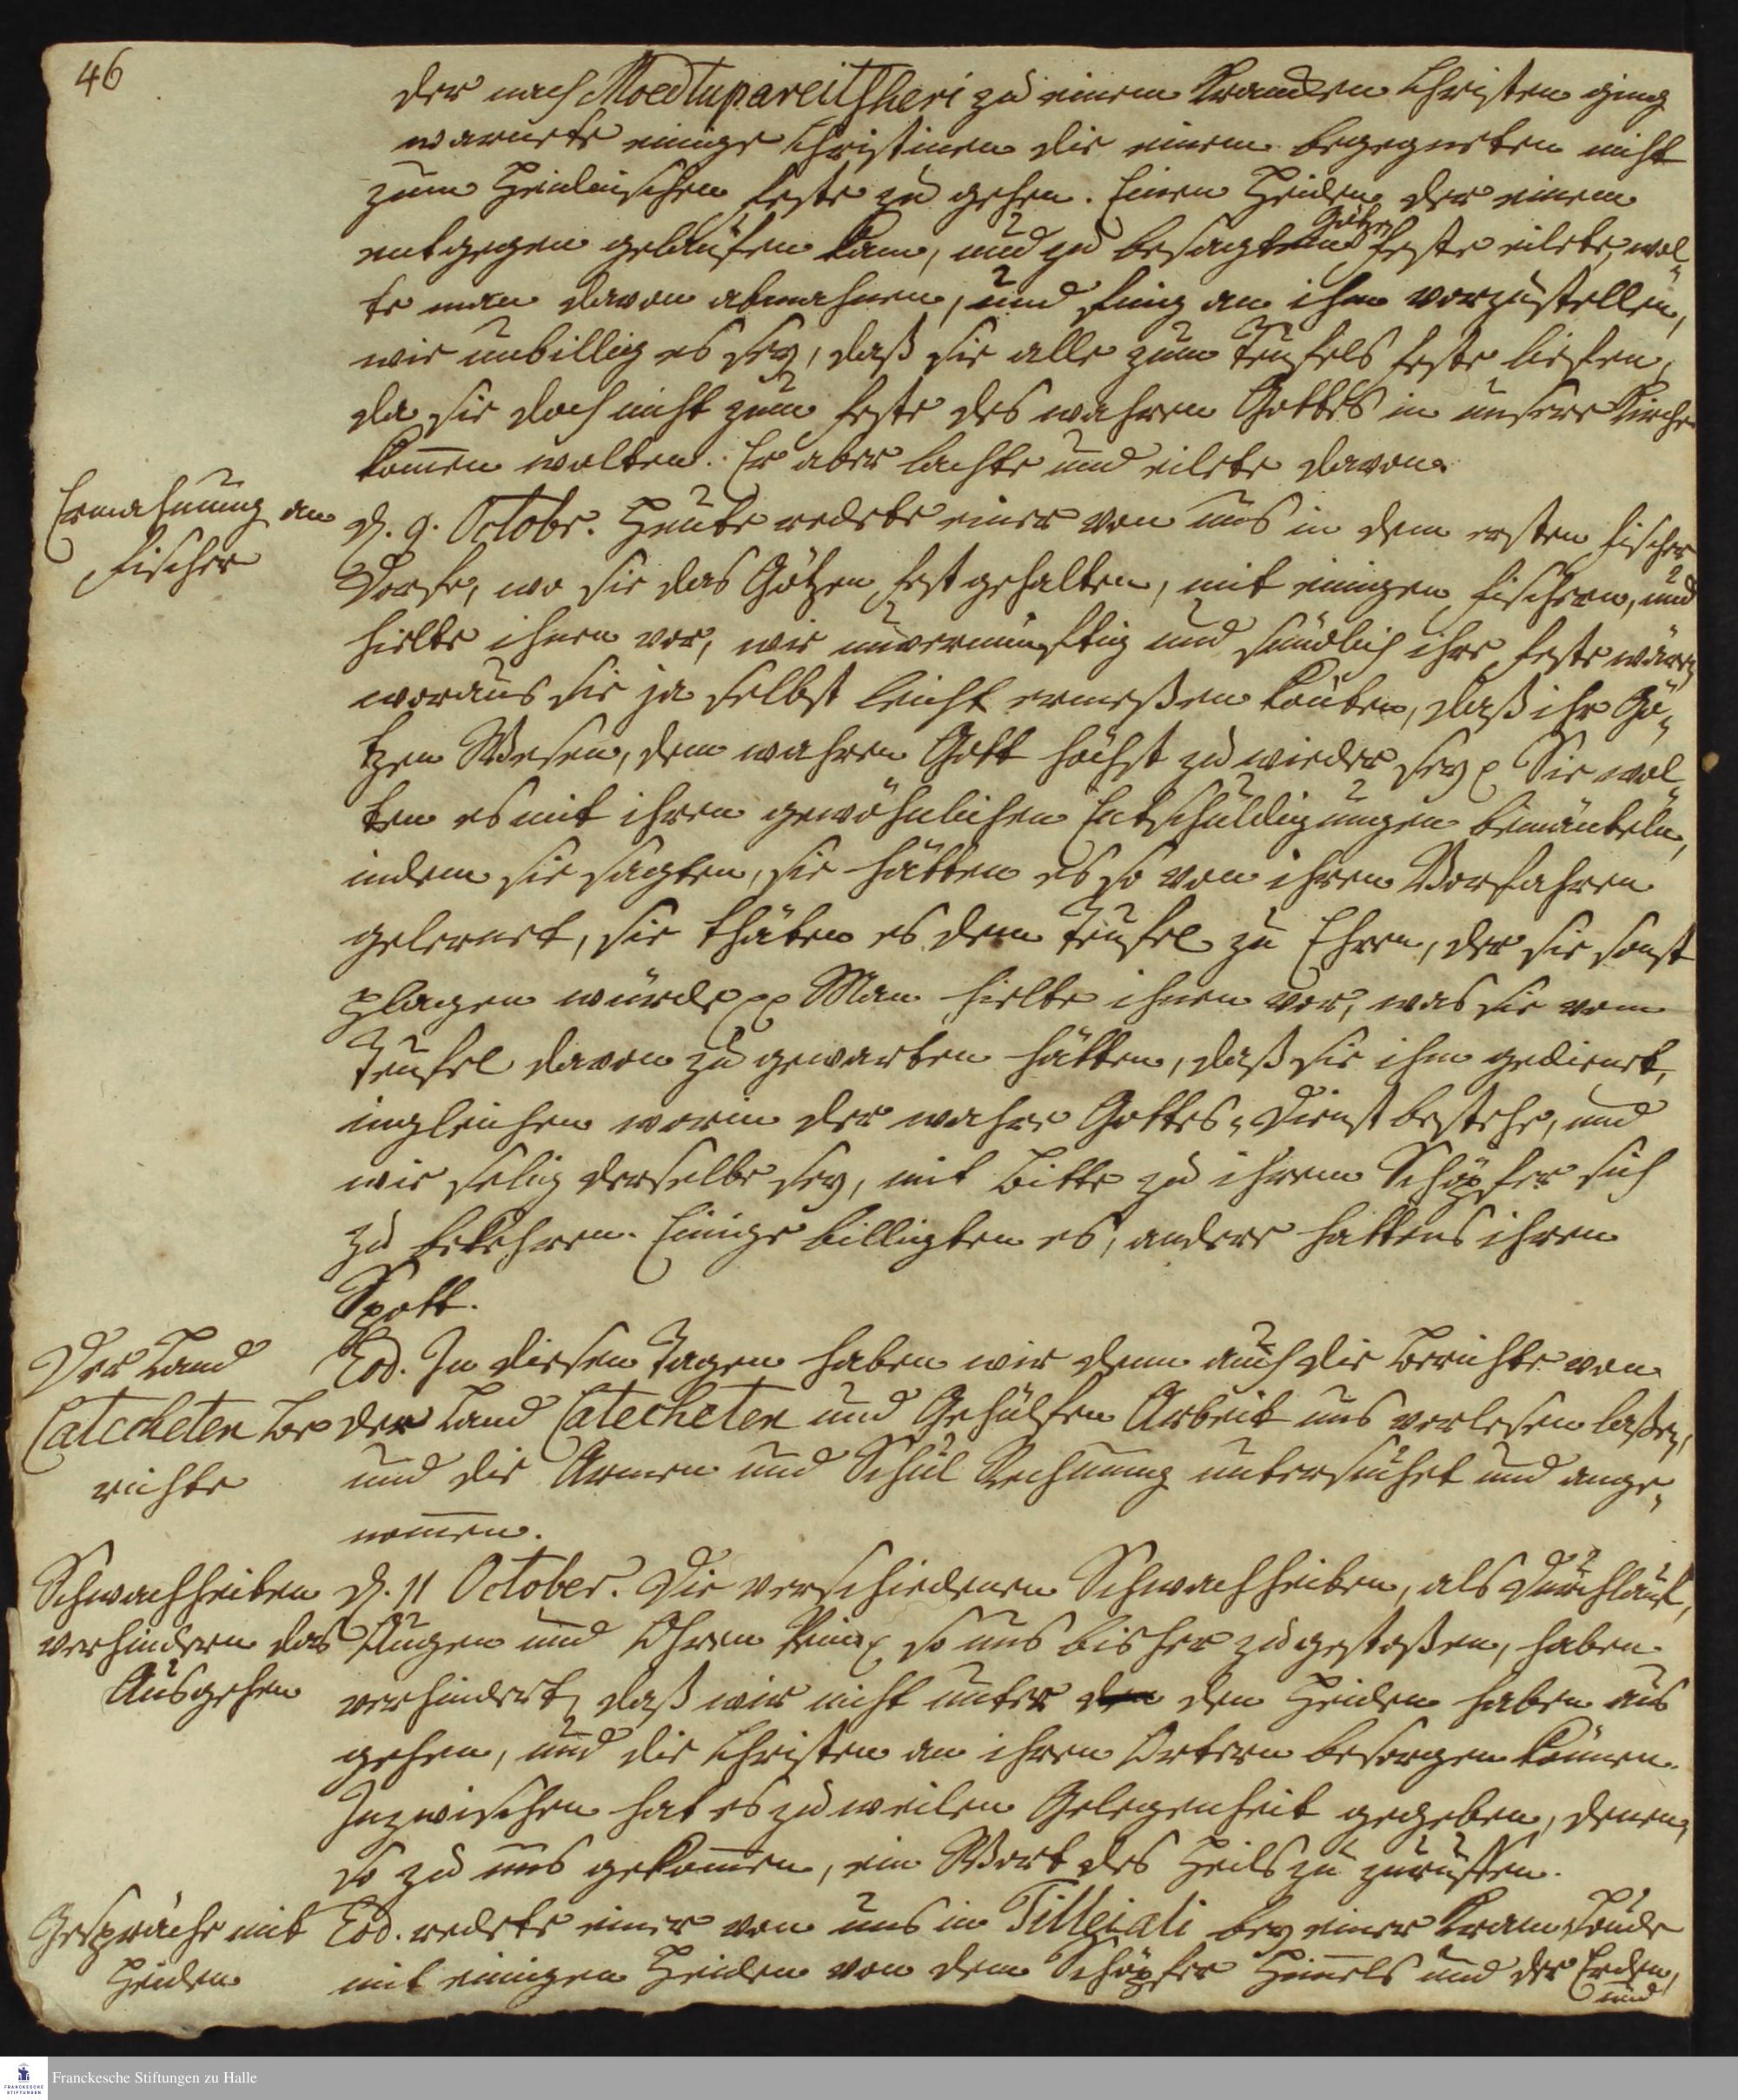 46
der nach Moedtupareitsheri zu einem Krancken Christen ging
warnete einige Christinen die einem begegneten nicht
zum Heidnischen Feste zu gehen. Einen Heiden der einem
entgegen gelaufen kam, und zu besagtem Götzen Feste eilete, wol-
te man davon abmahnen, und fing an ihm vorzustellen,
wie unbillig es sey, daß sie alle zum Teufels Feste liefen,
da sie doch nicht zum Feste des wahren Gottes in unsere Kirche
kom̄en wolten. Er aber lachte und eilete davon.
Ermahnung an
Fischer
d. 9. Octobr. Heute redete einer von uns in dem ersten Fischer
Dorfe, wo sie das Götzen Fest gehalten, mit einigen Fischern, und
hielte ihnen vor, wie unvernünftig und sündlich ihre Feste wären
woraus sie ja selbst leicht ermeßen könten, daß ihr Gö-
tzen Wesen, dem wahren Gott höchst zu wieder sey p Sie wol-
ten es mit ihren gewöhnlichen Entschuldigungen bemänteln,
indem sie sagten, sie hätten es so von ihren Vorfahren
gelernet, sie thäten es dem Teufel zu Ehren, der sie sonst
plagen würde pp Man hielte ihnen vor, was sie vom
Teufel davon zu gewarten hätten, daß sie ihm gedienet,
ingleichen worin der wahre Gottes-Dienst bestehe, und
wie selig derselbe sey, mit Bitte zu ihrem Schöpfer sich
zu bekehren. Einige billigten es, andere hattens ihren
Spott.
Der Land
Catecheten Be
richte
Eod. In diesen Tagen haben wir denn auch die Berichte von
der Land Catecheten und Gehülfen Arbeit uns verlesen laßen,
und die Armen und Schul Rechnung untersuchet und ange-
nom̄en.
Schwachheiten
verhindern das
Ausgehen
d. 11 October. Die verschiedenen Schwachheiten, als Durchlauf,
Augen und Ohren Pein p so uns bisher zugestoßen, haben
verhindert, daß wir nicht unter den den Heiden haben aus
gehen, und die Christen an ihren Örtern besorgen können.
Inzwischen hat es zuweilen Gelegenheit gegeben, denen,
so zu uns gekom̄en, ein Wort des Heils zu zuruffen.
Gespräche mit
Heiden
Eod. redete einer von uns in Tilleiali bey einer Kram Boude
mit einigen Heiden von dem Schöpfer Him̄els und der Erden,
und
Franckesche Stiftungen zu Halle
FRANCKESCHE
STIFTUNGEN